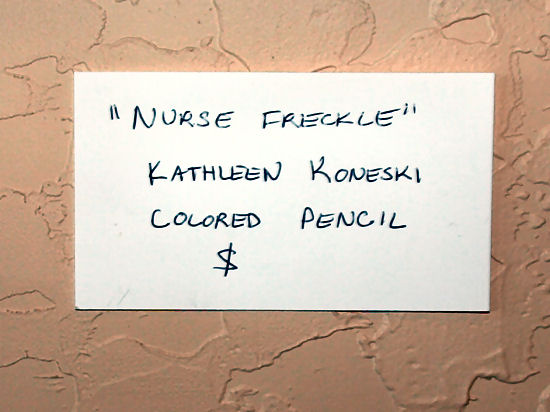 "NURSE FRECKLE"
KATHLEEN KONESKI
COLORED PENCIL
$